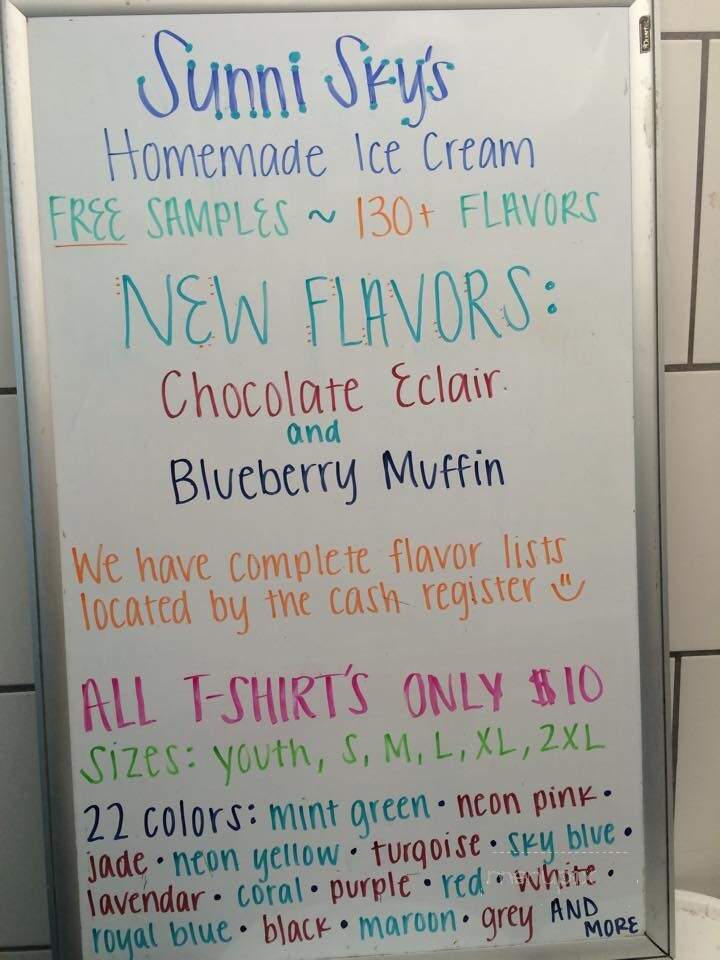 Sunni Sky's
Homemade Ice Cream
FREE SAMPLES ~ 130+ FLAVORS
NEW FLAVORS:
Chocolate Eclair
and
Blueberry Muffin
We have complete flavor lists
located by the cash register
ALL T-SHIRT'S ONLY $10
Sizes: youth, S, M, L, XL, 2XL
22 colors: mint green • neon pink •
jade • neon yellow • turqoise • sky blue •
lavendar • coral • purple • red • white •
royal blue • black • maroon • grey AND
MORE